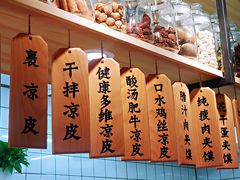 裹凉皮
干拌凉皮
健康多维凉皮
酸汤肥牛凉皮
口水鸡丝凉皮
腊汁肉夹馍
纯瘦肉夹馍
牛蛋夹馍